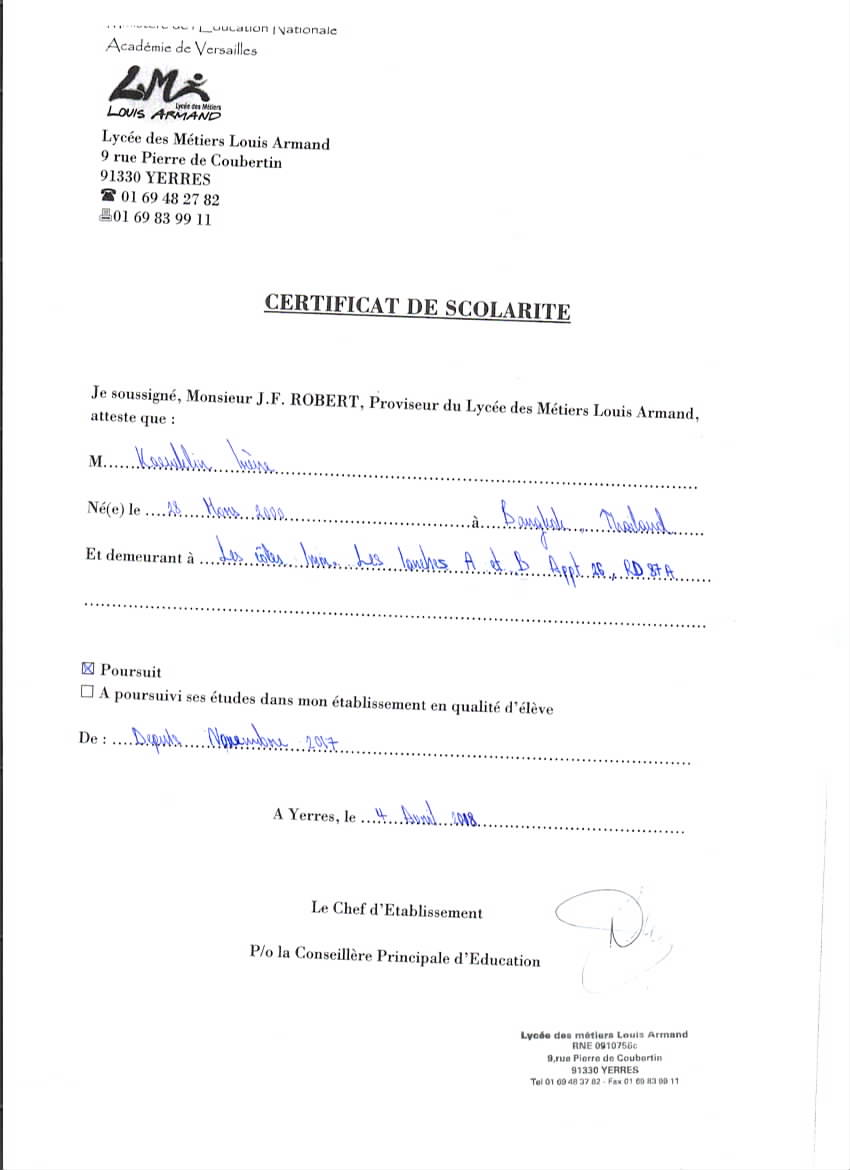 Ministère de l'Education Nationale
Académie de Versailles
LM
Lycée des Métiers
LOUIS ARMAND
Lycée des Métiers Louis Armand
9 rue Pierre de Coubertin
91330 YERRES
☎ 01 69 48 27 82
01 69 83 99 11
CERTIFICAT DE SCOLARITE
Je soussigné, Monsieur J.F. ROBERT, Proviseur du Lycée des Métiers Louis Armand,
atteste que :
M.
Né(e) le 28 Mars 2000 à Bangkok, Thaïland
Et demeurant à Les côtes Imm. Les A et B Appt 26, RD 87A
☒ Poursuit
☐ A poursuivi ses études dans mon établissement en qualité d'élève
De : Depuis Novembre 2017
A Yerres, le 4 Avril 2018
Le Chef d'Etablissement
P/o la Conseillère Principale d'Education
Lycée des métiers Louis Armand
RNE 0910756c
9,rue Pierre de Coubertin
91330 YERRES
Tel 01 69 48 37 82 - Fax 01 69 83 99 11